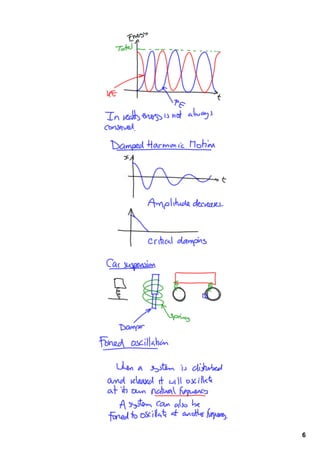 Energy
Total
KE
PE
t
In reality energy is not always
conserved.
Damped Harmonic Motion
x
t
Amplitude decreases
critical damping
Car suspension
Spring
Damper
Forced oscillation
When a system is disturbed
and released it will oscillate
at its own natural frequency
A system can also be
forced to oscillate at another frequency
6